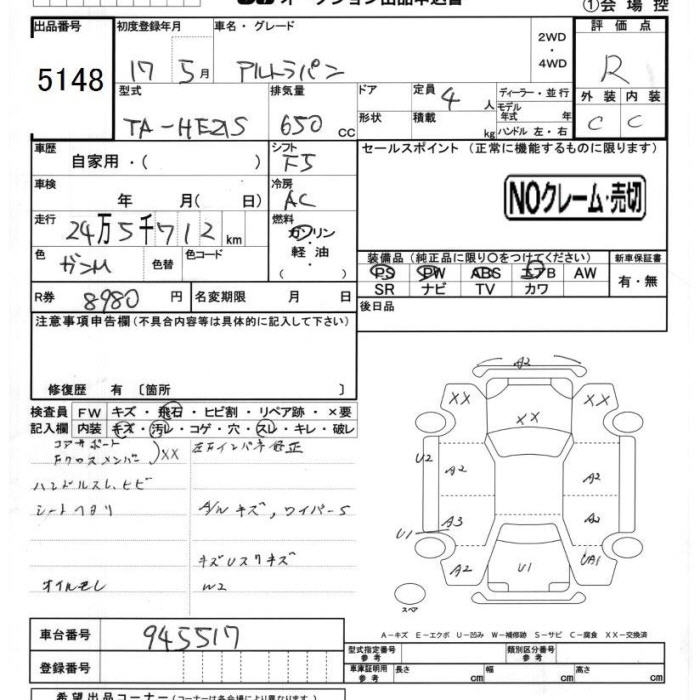 ①会場控
出品番号
5148
初度登録年月
17 5月
車名・グレード
アルトラパン
2WD
・
4WD
評価点
R
外装 内装
C C
型式
TA-HE21S
排気量
650 cc
ドア
形状
定員
4 人
積載
kg
ディーラー・並行
モデル年式 年
ハンドル 左・右
車歴
自家用・( )
シフト
F5
セールスポイント (正常に機能するものに限ります)
NOクレーム・売切
車検
年 月( 日)
冷房
AC
走行
24万5千712 km
燃料
ガソリン
軽油
・( )
色
ガンM
色替
色コード
装備品 (純正品に限り○をつけてください)
新車保証書
PS PW ABS エアB AW
SR ナビ TV カワ
有・無
R券
8980 円
名変期限 月 日
後日品
注意事項申告欄(不具合内容等は具体的に記入して下さい)
修復歴 有 〔箇所 〕
検査員記入欄
FW キズ・飛石・ヒビ割・リペア跡・×要
内装 キズ・汚レ・コゲ・穴・スレ・キレ・破レ
コアサポート
Fクロスメンバー
)XX
左右インパネ修正
ハンドルスレ、ヒビ
シートヘタリ
A/W キズ, ワイパーS
キズUスリキズ
オイルモレ
W2
A2
XX
XX
XX
U2
A2
A2
A3
A2
U1
A2
U1
UA1
スペア
A-キズ E-エクボ U-凹み W-補修跡 S-サビ C-腐食 XX-交換済
車台番号
945517
登録番号
型式指定番号
参考
類別区分番号
参考
車庫証明用
参考
長さ cm
幅 cm
高さ cm